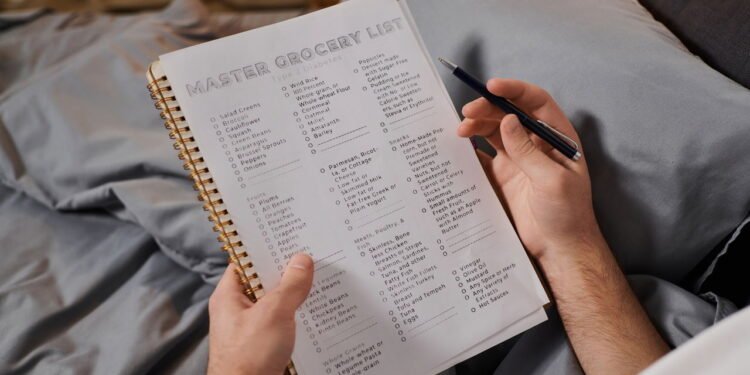 MASTER GROCERY LIST
Type 2 Diabetes
Salad Greens
Broccoli
Cauliflower
Squash
Green Beans
Asparagus
Brussel Sprouts
Peppers
Onions
Fruits
Plums
All Berries
Oranges
Peaches
Tomatoes
Grapefruit
Apples
Pears
Lentils
White Beans
Chickpeas
Kidney Beans
Pinto Beans
Whole Grains
Whole wheat or
Legume Pasta
Wild Rice
100 Percent
Whole grain, or
Whole wheat Flour
Cornmeal
Oatmeal
Millet
Amaranth
Barley
Parmesan, Ricot-
ta, or Cottage
Cheese
Low fat or
Skimmed Milk
Low fat or
Fat Free Greek or
Plain Yogurt
Meats, Poultry, &
Fish
Skinless, Bone-
less Chicken
Breasts or Strips
Salmon, Sardines,
Tuna, and other
Fatty Fish
White Fish Fillets
Skinless Turkey
Breast
Tofu and Tempeh
Tuna
Eggs
Popsicles
Dessert made
with Sugar-Free
Gelatin
Pudding or Ice
Cream Sweetened
with No- or Low
Calorie Sweeten-
ers, such as
Stevia or Erythritol
Snacks
Home-Made Pop-
corn, but not
Premade or
Sweetened
Varieties
Nuts, but not
Sweetened
Varieties
Carrot or Celery
Sticks with
Hummus
Small amounts of
Fresh Fruit,
such as an Apple
with Almond
Butter
Vinegar
Olive Oil
Mustard
Any Spice or Herb
Any variety of
Extracts
Hot Sauces